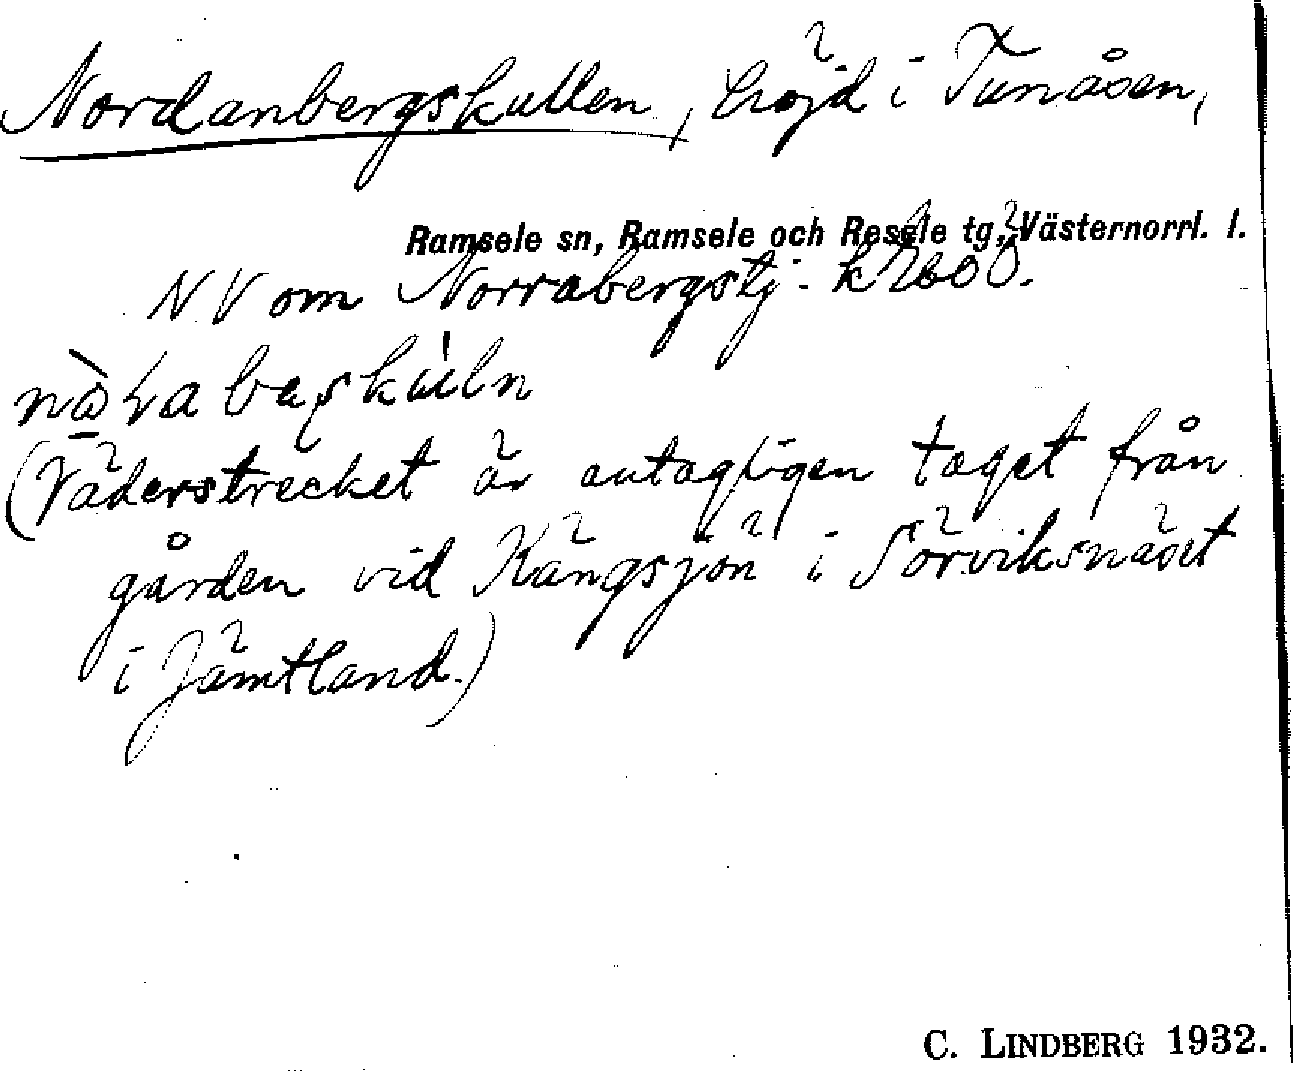 Nordanbergskullen, höjd i Tunåsen,
Ramsele sn, Ramsele och Resele tg, Västernorrl. l.
NV om Norrabergstj.
(Väderstrecket är antagligen taget från
gården vid Kängsjön i Sörviksnäset
i Jämtland.)
C. LINDBERG 1932.